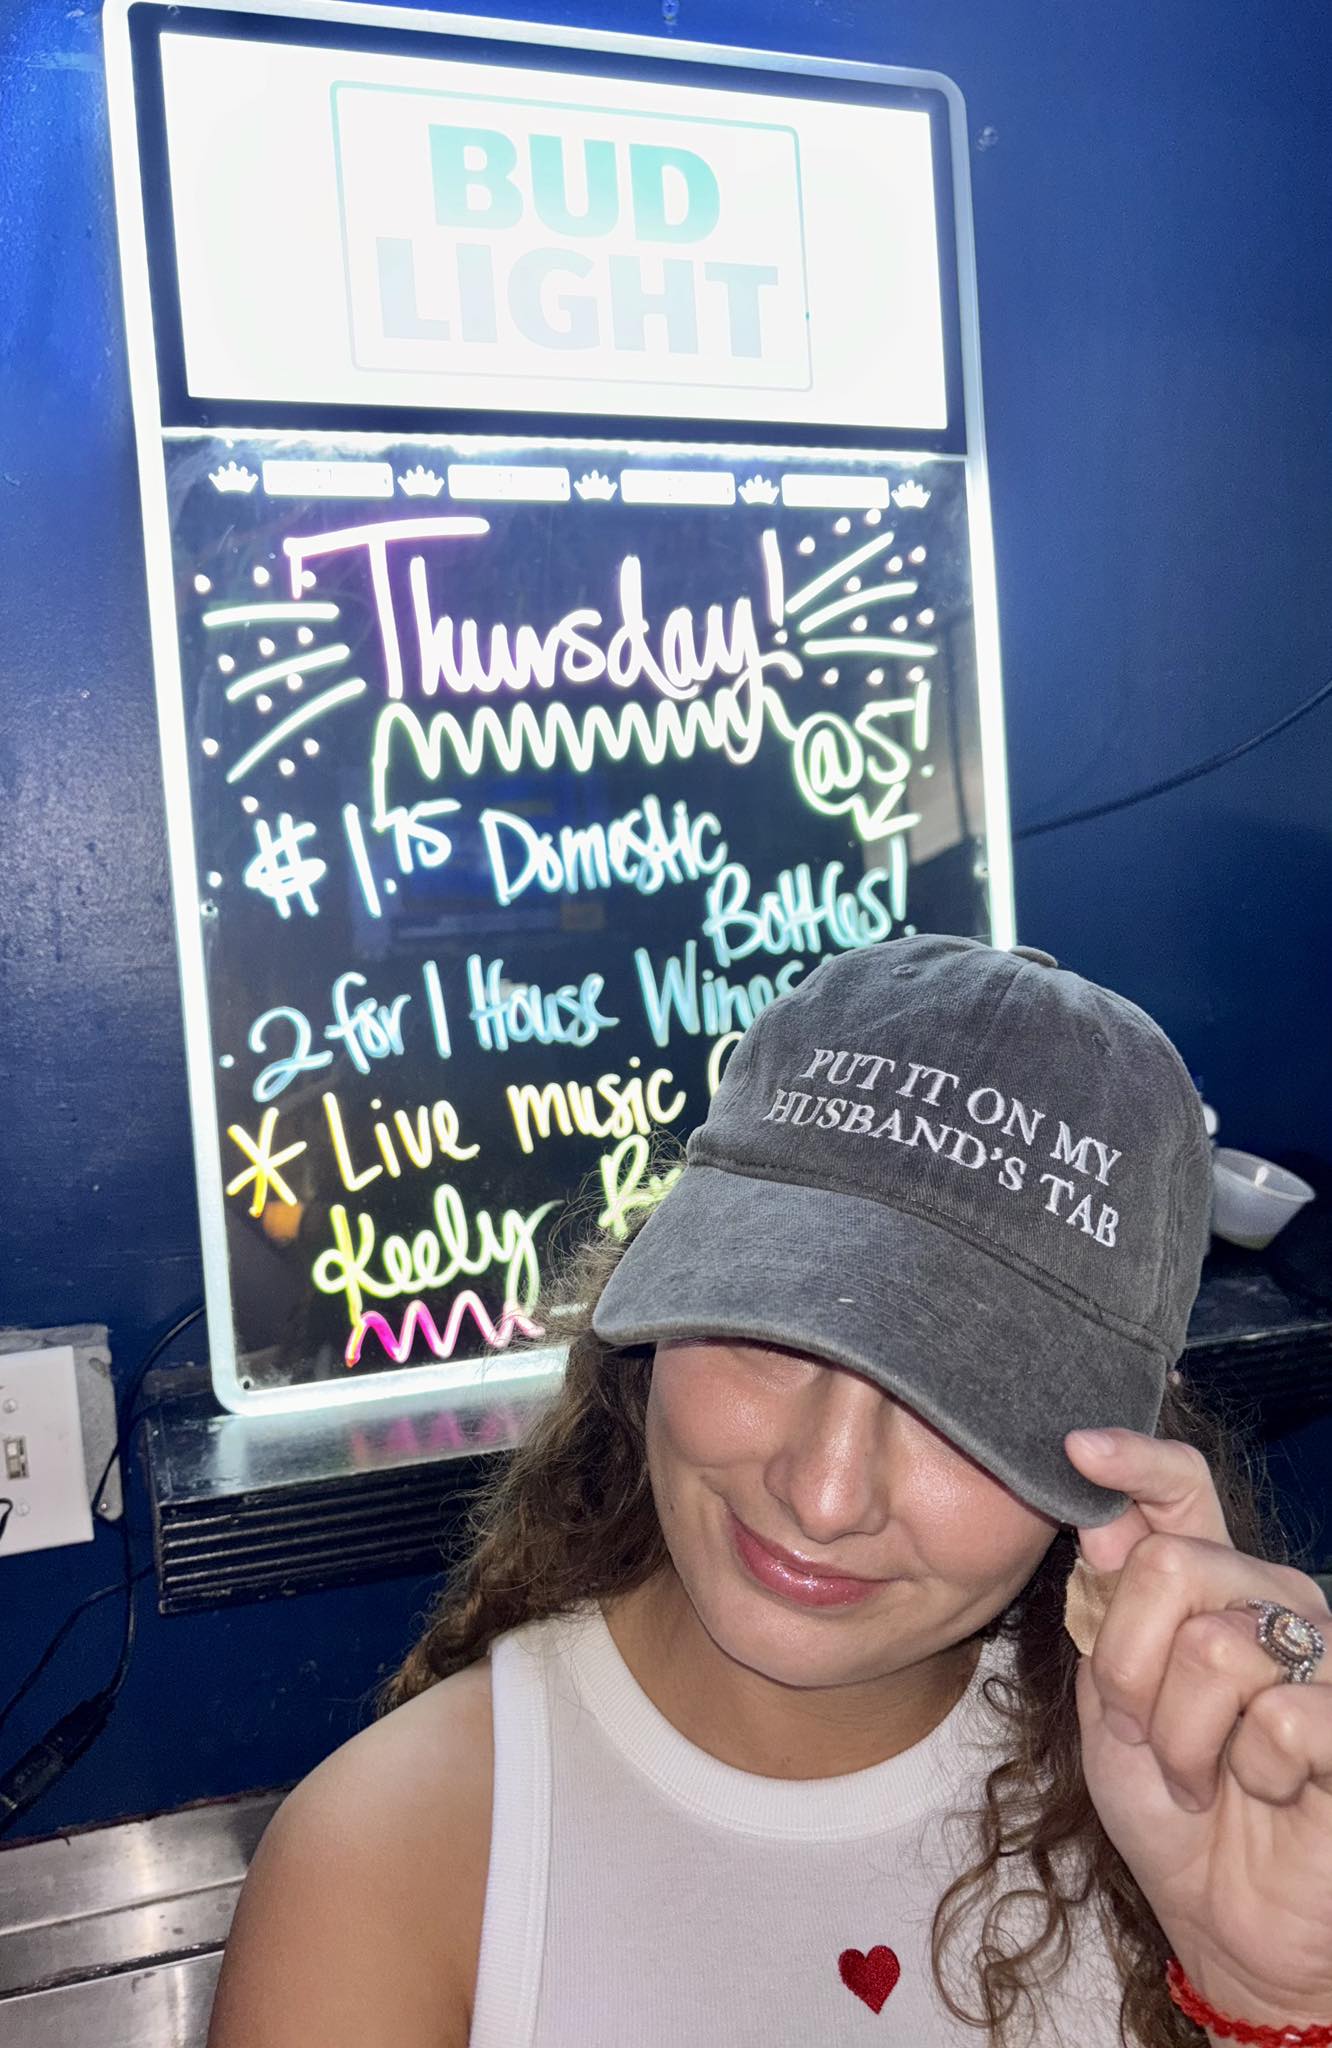 BUD
LIGHT
Thursday!
@5!
$1.75 Domestic
Bottles!
2 for 1 House Wines
* Live music
Keely
PUT IT ON MY
HUSBAND'S TAB